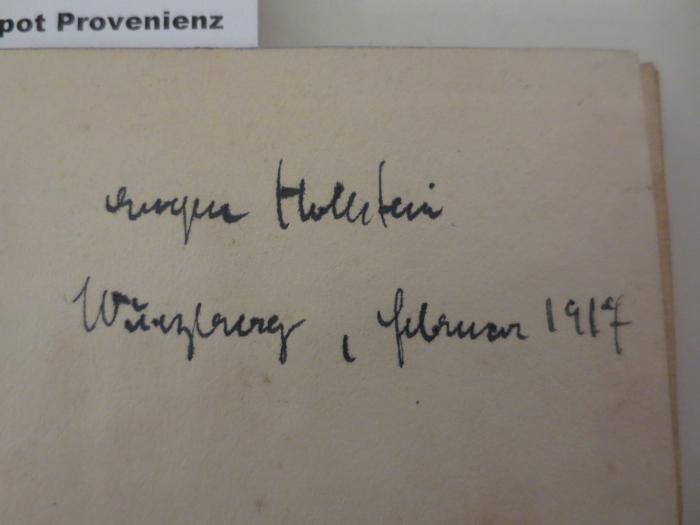 pot Provenienz
Hollstein
Würzburg, februar 1917